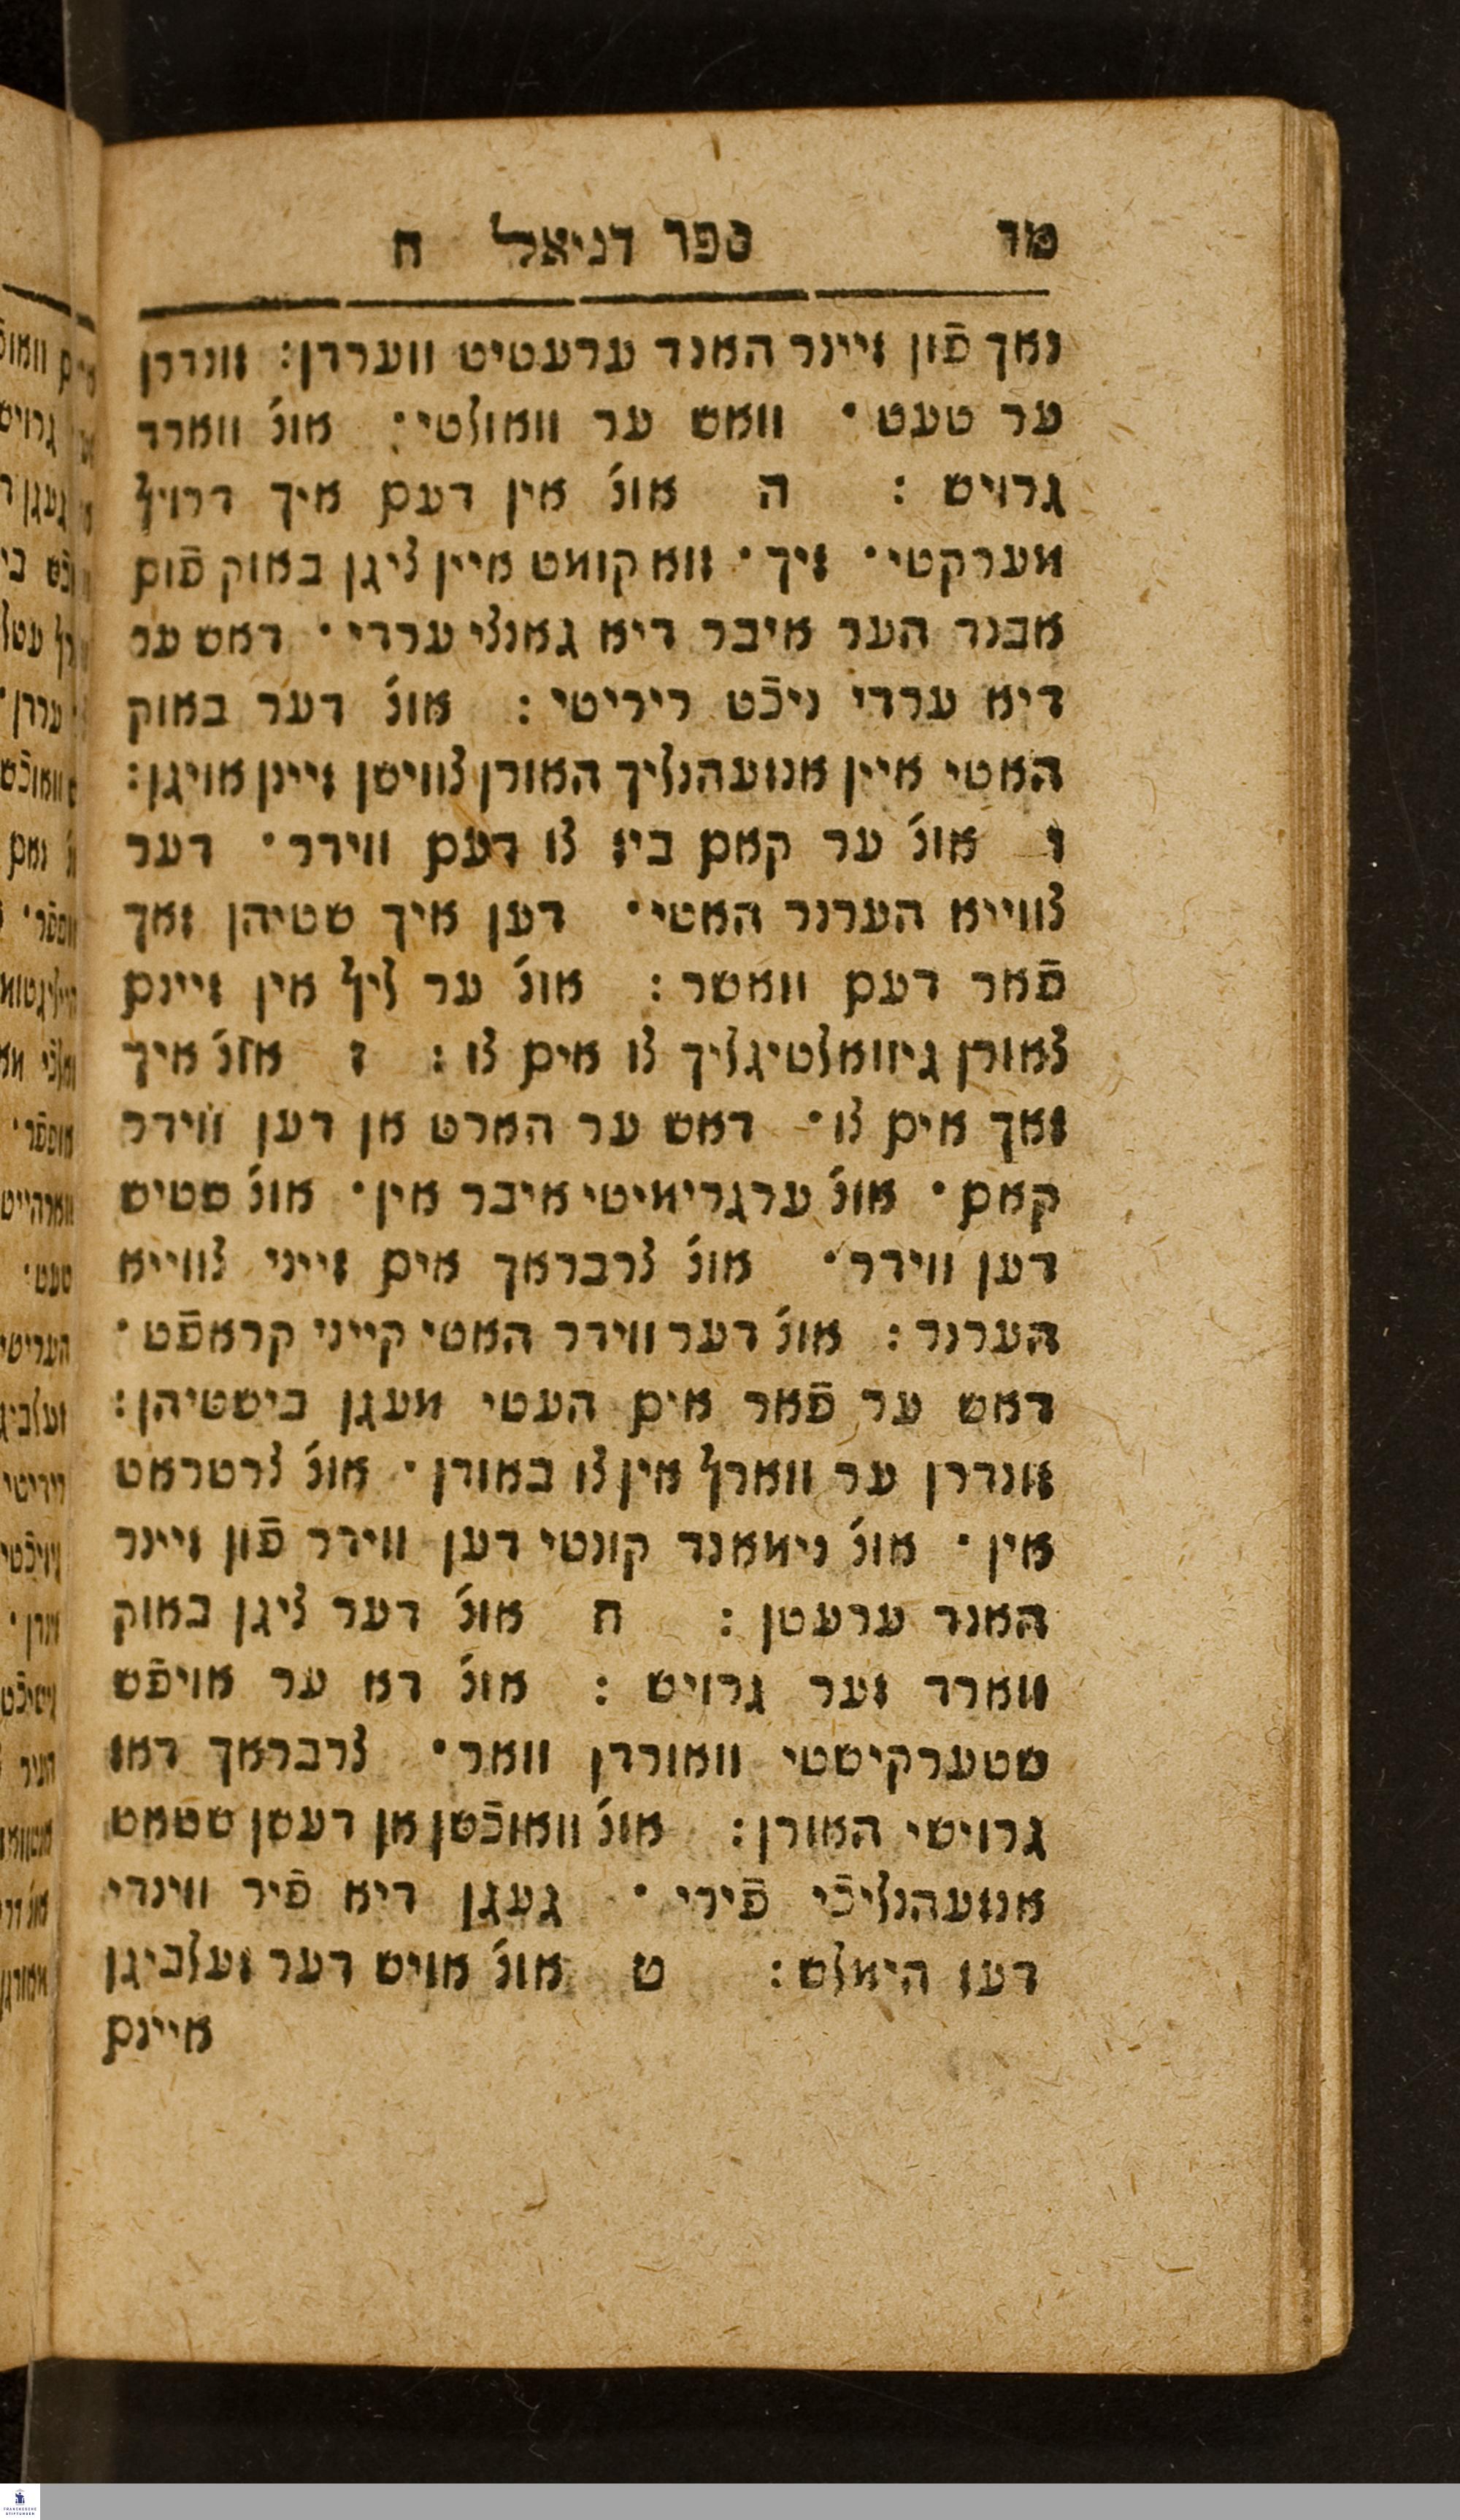 מד ספר דניאל ח
נאך פֿון זיינר האנד ערעטיט ווערדן: זונדרן
ער טעט · וואש ער וואולטי · אונ׳ ווארד
גרויש : ה אונ׳ אין דעם איך דרויף
מערקטי · זיך · זוא קומט איין ציגן באוק פֿום
אבנד הער איבר דיא גאנצי ערדי · דאש ער
דיא ערדי ניכֿט רירטי : אונ׳ דער באוק
האטי איין אנזעהנליך האורן צווישן זיינן אויגן:
ו אונ׳ ער קאם ביז צו דעם ווידר · דער
צווייא הערנר האטי · דען איך שטיהן זאך
פֿאר דעם וואשר : אונ׳ ער ליף אין זיינם
צאורן גיוואלטיגליך צו אים צו : ז אונ׳ איך
זאך אים צו · דאש ער הארט אן דען ווידר
קאם · אונ׳ ערגרימיטי איבר אין · אונ׳ שטיש
דען ווידר · אונ׳ צרבראך אים זייני צווייא
הערנר : אונ׳ דער ווידר האטי קייני קראפֿט ·
דאש ער פֿאר אים העטי מעגן בישטיהן:
זונדרן ער ווארף אין צו באודן · אונ׳ צרטראט
אין · אונ׳ נימאנד קונטי דען ווידר פֿון זיינר
האנד ערעטן : ח אונ׳ דער ציגן באוק
ווארד זער גרויש : אונ׳ דא ער אויפֿש
שטערקישטי וואורדן וואר · צרבראך דאז
גרוישי האורן : אונ׳ וואוכֿשן אן דעשן שטאט
אנזעהנליכֿי פֿירי · געגן דיא פֿיר ווינדי
דעז הימלש : ט אונ׳ אויש דער זעלביגן
איינם